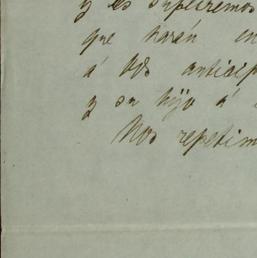 y es supliremos
que harán en
á Vds antici
y su hijo á
Nos repetim